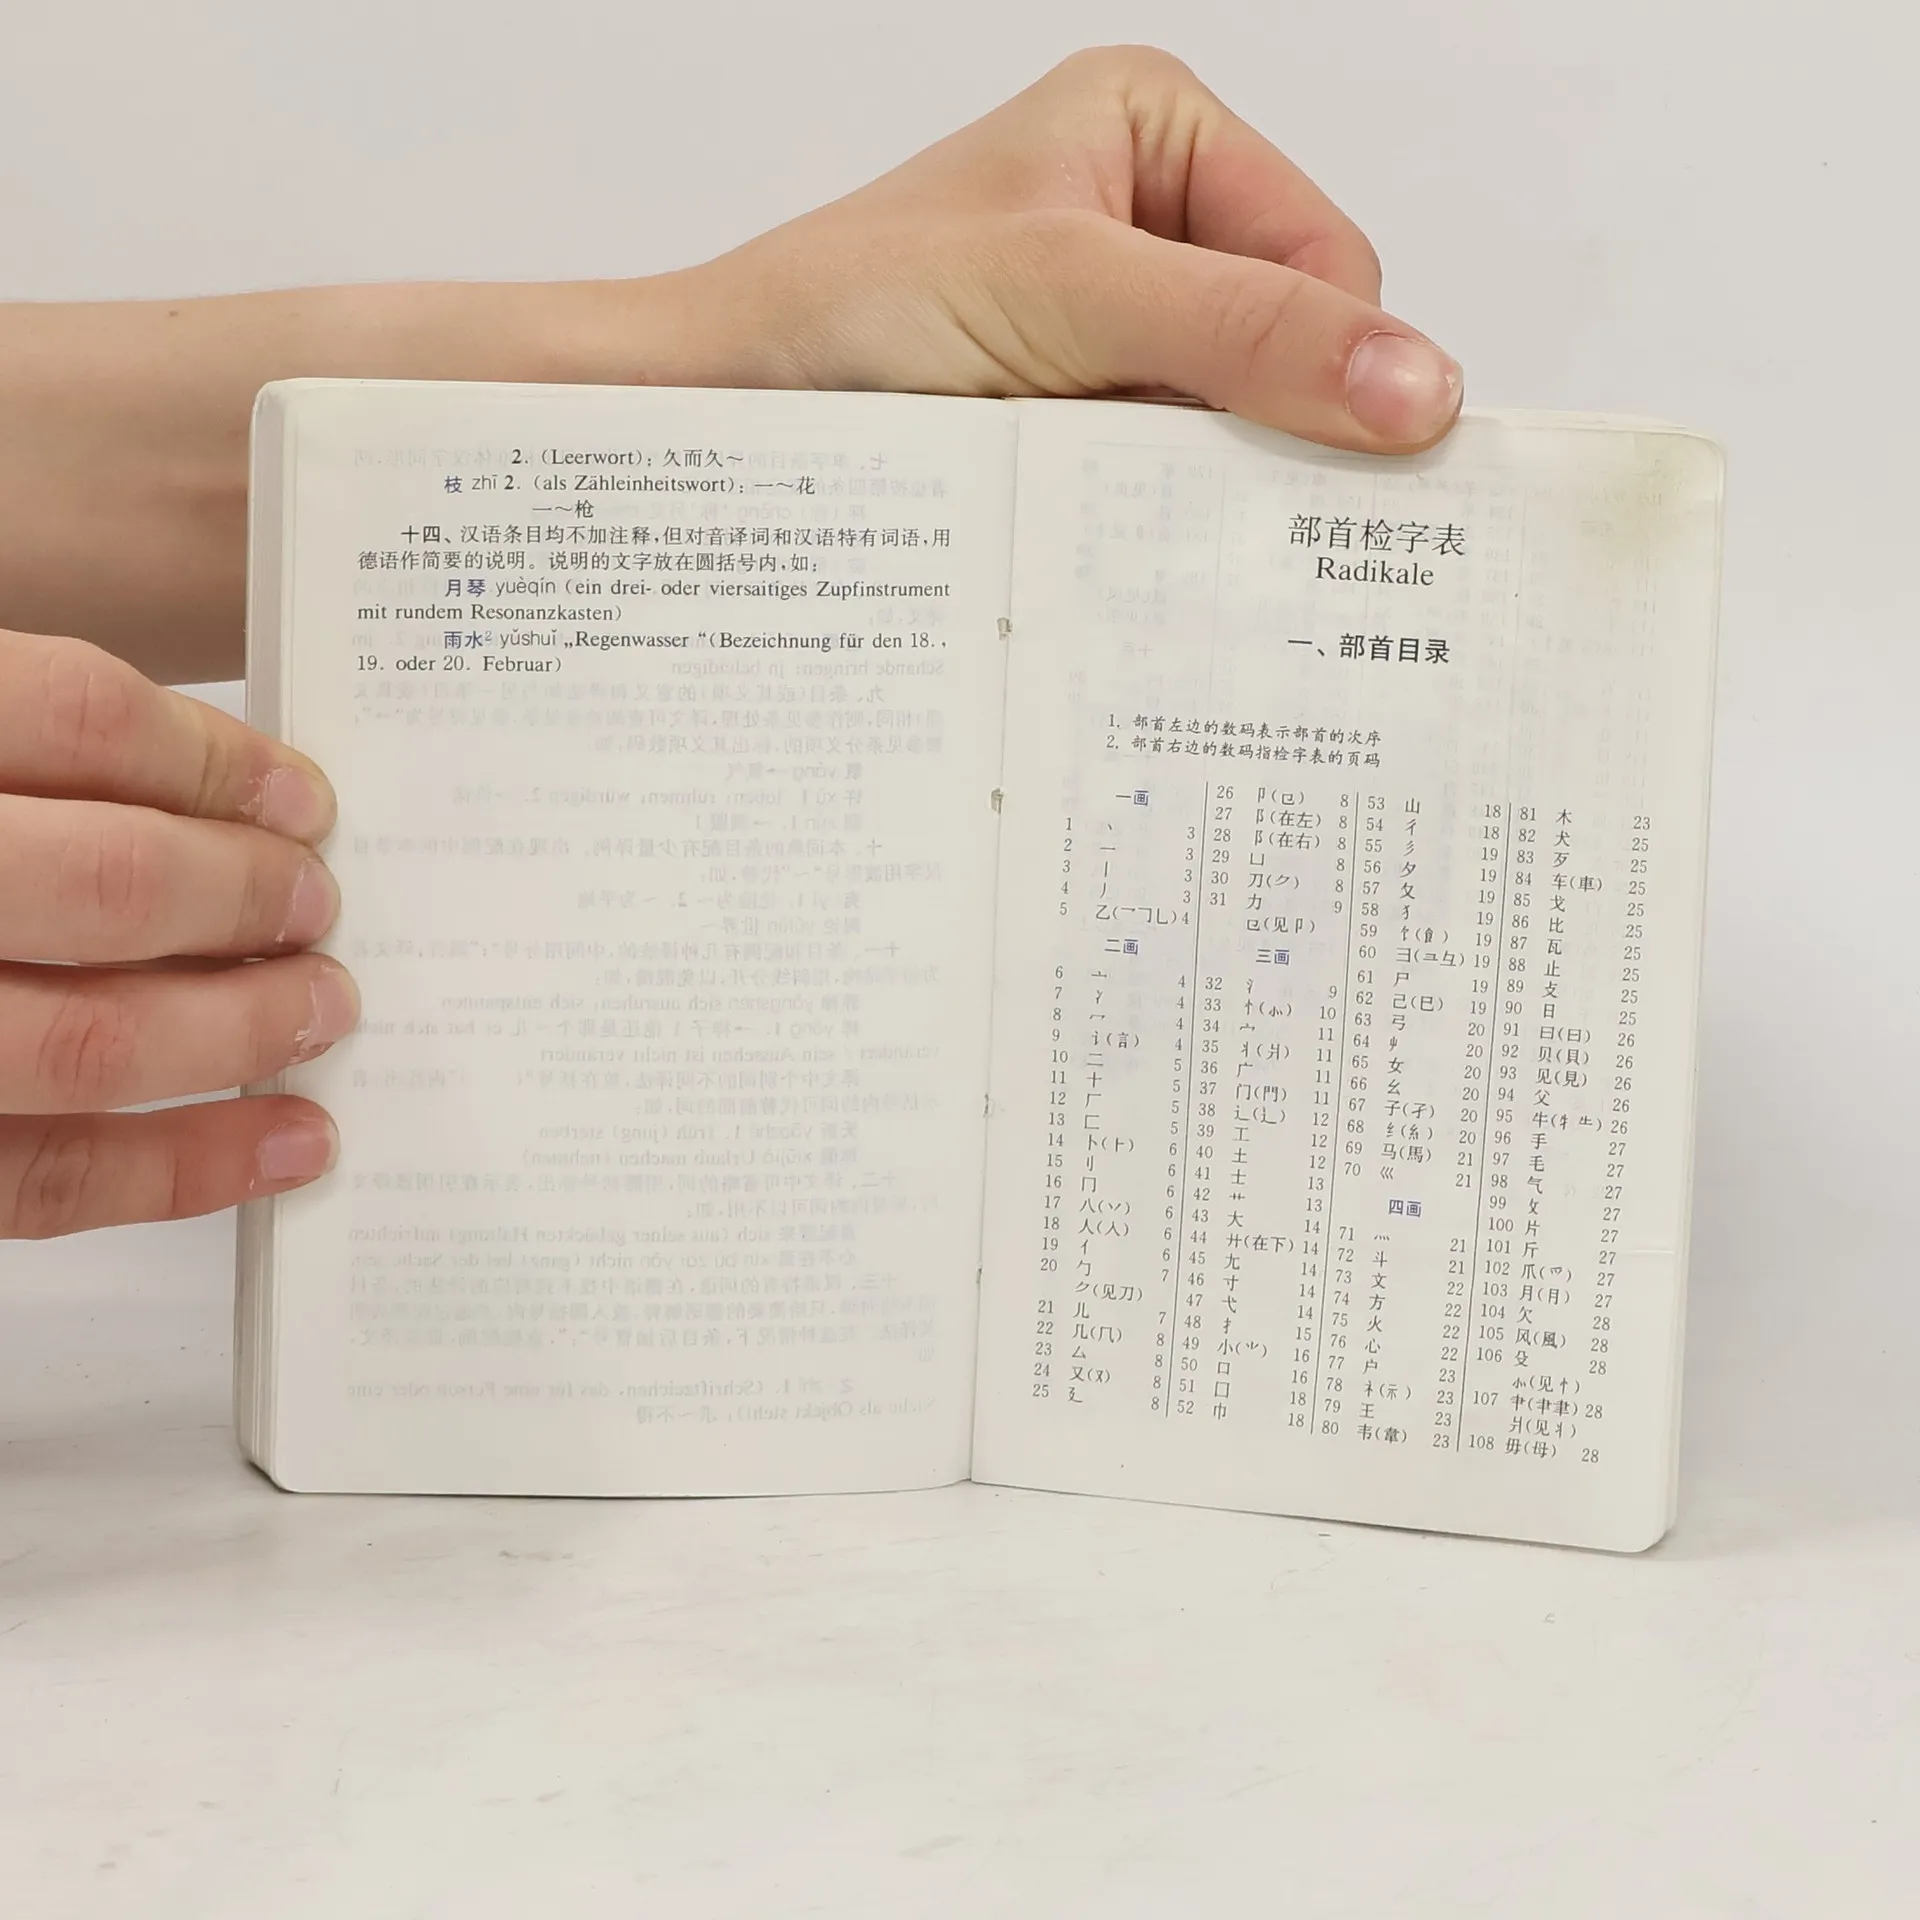 2. (Leerwort): 久而久～
枝 zhī 2. (als Zähleinheitswort): 一～花
一～枪
十四、汉语条目均不加注释,但对音译词和汉语特有词语,用
德语作简要的说明。说明的文字放在圆括号内,如:
月琴 yuèqín (ein drei- oder viersaitiges Zupfinstrument
mit rundem Resonanzkasten)
雨水² yǔshuǐ „Regenwasser “(Bezeichnung für den 18.,
19. oder 20. Februar)
部首检字表
Radikale
一、部首目录
1. 部首左边的数码表示部首的次序
2. 部首右边的数码指检字表的页码
一画
1 丶 3
2 一 3
3 丨 3
4 丿 3
5 乙(乛𠃌乚) 4
二画
6 亠 4
7 冫 4
8 冖 4
9 讠(言) 4
10 二 5
11 十 5
12 厂 5
13 匚 5
14 卜(⺊) 6
15 刂 6
16 冂 6
17 八(丷) 6
18 人(入) 6
19 亻 6
20 勹 7
⺈(见刀)
21 儿 7
22 几(𠘨) 8
23 厶 8
24 又(ヌ) 8
25 廴 8
26 卩(㔾) 8
27 阝(在左) 8
28 阝(在右) 8
29 凵 8
30 刀(⺈) 8
31 力 9
㔾(见卩)
三画
32 氵 9
33 忄(㣺) 10
34 宀 11
35 丬(爿) 11
36 广 11
37 门(門) 11
38 辶(辶) 12
39 工 12
40 土 12
41 士 13
42 艹 13
43 大 14
44 廾(在下) 14
45 尢 14
46 寸 14
47 弋 14
48 扌 15
49 小(⺌) 16
50 口 16
51 囗 18
52 巾 18
53 山 18
54 彳 18
55 彡 19
56 夕 19
57 夂 19
58 犭 19
59 饣(飠) 19
60 彐(⺕彑) 19
61 尸 19
62 己(巳) 19
63 弓 20
64 屮 20
65 女 20
66 幺 20
67 子(孑) 20
68 纟(糹) 20
69 马(馬) 21
70 巛 21
四画
71 灬 21
72 斗 21
73 文 22
74 方 22
75 火 22
76 心 22
77 户 23
78 礻(示) 23
79 王 23
80 韦(韋) 23
81 木 23
82 犬 25
83 歹 25
84 车(車) 25
85 戈 25
86 比 25
87 瓦 25
88 止 25
89 攴 25
90 日 25
91 曰(曰) 26
92 贝(貝) 26
93 见(見) 26
94 父 26
95 牛(牜⺧) 26
96 手 27
97 毛 27
98 气 27
99 攵 27
100 片 27
101 斤 27
102 爪(爫) 27
103 月(月) 27
104 欠 28
105 风(風) 28
106 殳 28
㣺(见忄)
107 肀(⺻聿) 28
爿(见丬)
108 毋(母) 28